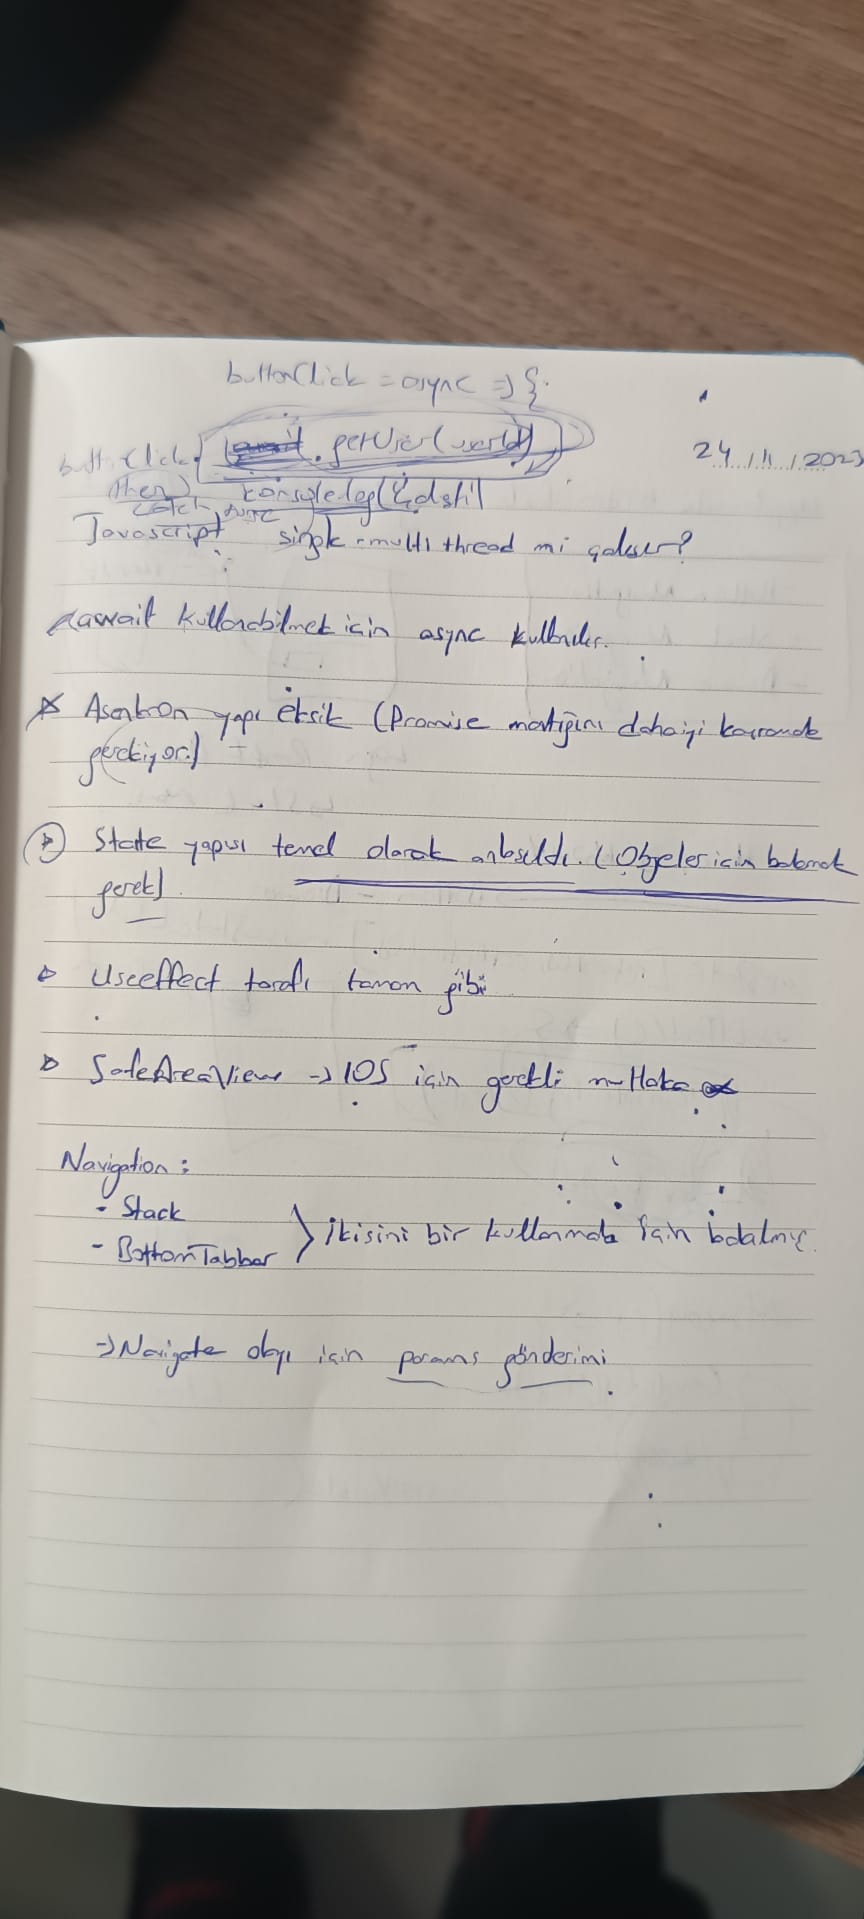 buttonClick = async => {
buttonClick. getUser(userId)
24/11/2023
then)
catch
Javascript single - multi thread mi çalışır?
await kullanabilmek için async kullanılır.
Asenkron yapı eksik (Promise mantığını daha iyi kavramak
gerekiyor.)
State yapısı temel olarak anlaşıldı. (Objeler için bakmak
gerek)
Useeffect tarafı tamam gibi
SafeAreaView -> IOS için gerekli mutlaka
Navigation:
- Stack
- BottomTabbar
ikisini bir kullanmak için bakalım
-> Navigate olayı için params gönderimi